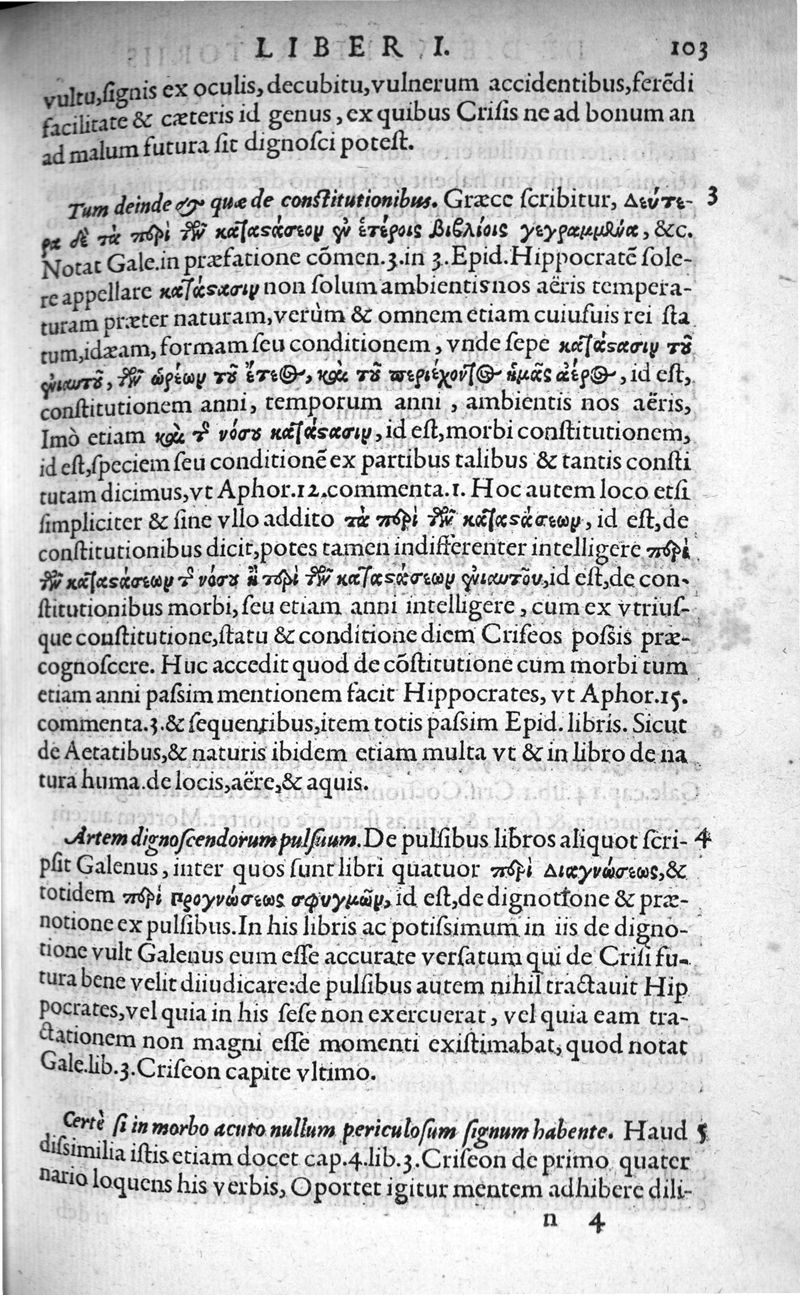 LIBER I. 103
vultu,ſignis ex oculis, decubitu,vulnerum accidentibus,ferēdi
facilitate & cæteris id genus, ex quibus Criſis ne ad bonum an
ad malum futura ſit dignoſci poteſt.
Tum deinde & quæ de conſtitutionibus. Græce ſcribitur, Δεύτε- 3
ρα δὲ τὰ περὶ τῶν καταστάσεων ἐν ἑτέροις βιβλίοις γεγραμμένα, &c.
Notat Gale.in præfatione cōmen.3.in 3.Epid.Hippocratē ſole-
re appellare κατάστασιν non ſolum ambientis nos aëris tempera-
turam præter naturam, verùm & omnem etiam cuiuſuis rei ſta
tum,idæam, formam ſeu conditionem, vnde ſepe κατάστασιν τοῦ
ἐνιαυτοῦ, τῶν ὡρέων τοῦ ἔτεος, καὶ τοῦ περιέχοντος ἡμᾶς ἀέρος, id eſt,
conſtitutionem anni, temporum anni, ambientis nos aëris,
Imò etiam καὶ τ νόσου κατάστασιν, id eſt,morbi conſtitutionem,
id eſt,ſpeciem ſeu conditionē ex partibus talibus & tantis conſti
tutam dicimus,vt Aphor.12.commenta.1. Hoc autem loco etſi
ſimpliciter & ſine vllo addito τὰ περὶ τῶν καταστάσεων, id eſt,de
conſtitutionibus dicit,potes tamen indifferenter intelligere περὶ
τῶν καταστάσεων τ νόσου ἢ περὶ τῶν καταστάσεων ἐνιαυτοῦ,id eſt,de con-
ſtitutionibus morbi, ſeu etiam anni intelligere, cum ex vtriuſ-
que conſtitutione,ſtatu & conditione diem Criſeos poſsis præ-
cognoſcere. Huc accedit quod de cōſtitutione cum morbi tum
etiam anni paſsim mentionem facit Hippocrates, vt Aphor.15.
commenta.3.& ſequentibus,item totis paſsim Epid. libris. Sicut
de Aetatibus,& naturis ibidem etiam multa vt & in libro de na
tura huma.de locis,aëre,& aquis.
Artem dignoſcendorum pulſuum. De pulſibus libros aliquot ſcri- 4
pſit Galenus, inter quos ſunt libri quatuor περὶ Διαγνώσεως,&
totidem περὶ προγνώσεως σφυγμῶν, id eſt,de dignotione & præ-
notione ex pulſibus.In his libris ac potiſsimum in iis de digno-
tione vult Galenus eum eſſe accurate verſatum qui de Criſi fu-
tura bene velit diiudicare:de pulſibus autem nihil tractauit Hip
pocrates,vel quia in his ſeſe non exercuerat, vel quia eam tra-
ctationem non magni eſſe momenti exiſtimabat, quod notat
Gale.lib.3.Criſeon capite vltimo.
Certè ſi in morbo acuto nullum periculoſum ſignum habente. Haud 5
diſsimilia iſtis etiam docet cap.4.lib.3.Criſeon de primo quater
nario loquens his verbis, Oportet igitur mentem adhibere dili-
n 4